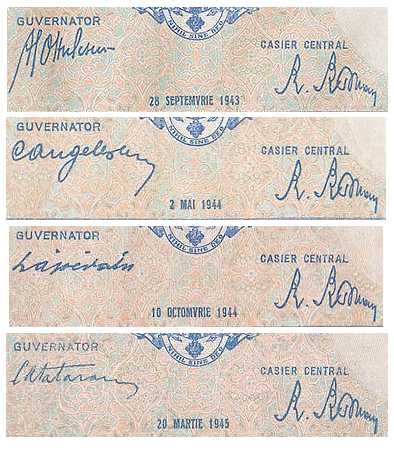 GUVERNATOR
NIHIL SINE DEO
CASIER CENTRAL
28 SEPTEMVRIE 1943
GUVERNATOR
NIHIL SINE DEO
CASIER CENTRAL
C Angelescu
2 MAI 1944
GUVERNATOR
NIHIL SINE DEO
CASIER CENTRAL
10 OCTOMVRIE 1944
GUVERNATOR
NIHIL SINE DEO
CASIER CENTRAL
20 MARTIE 1945